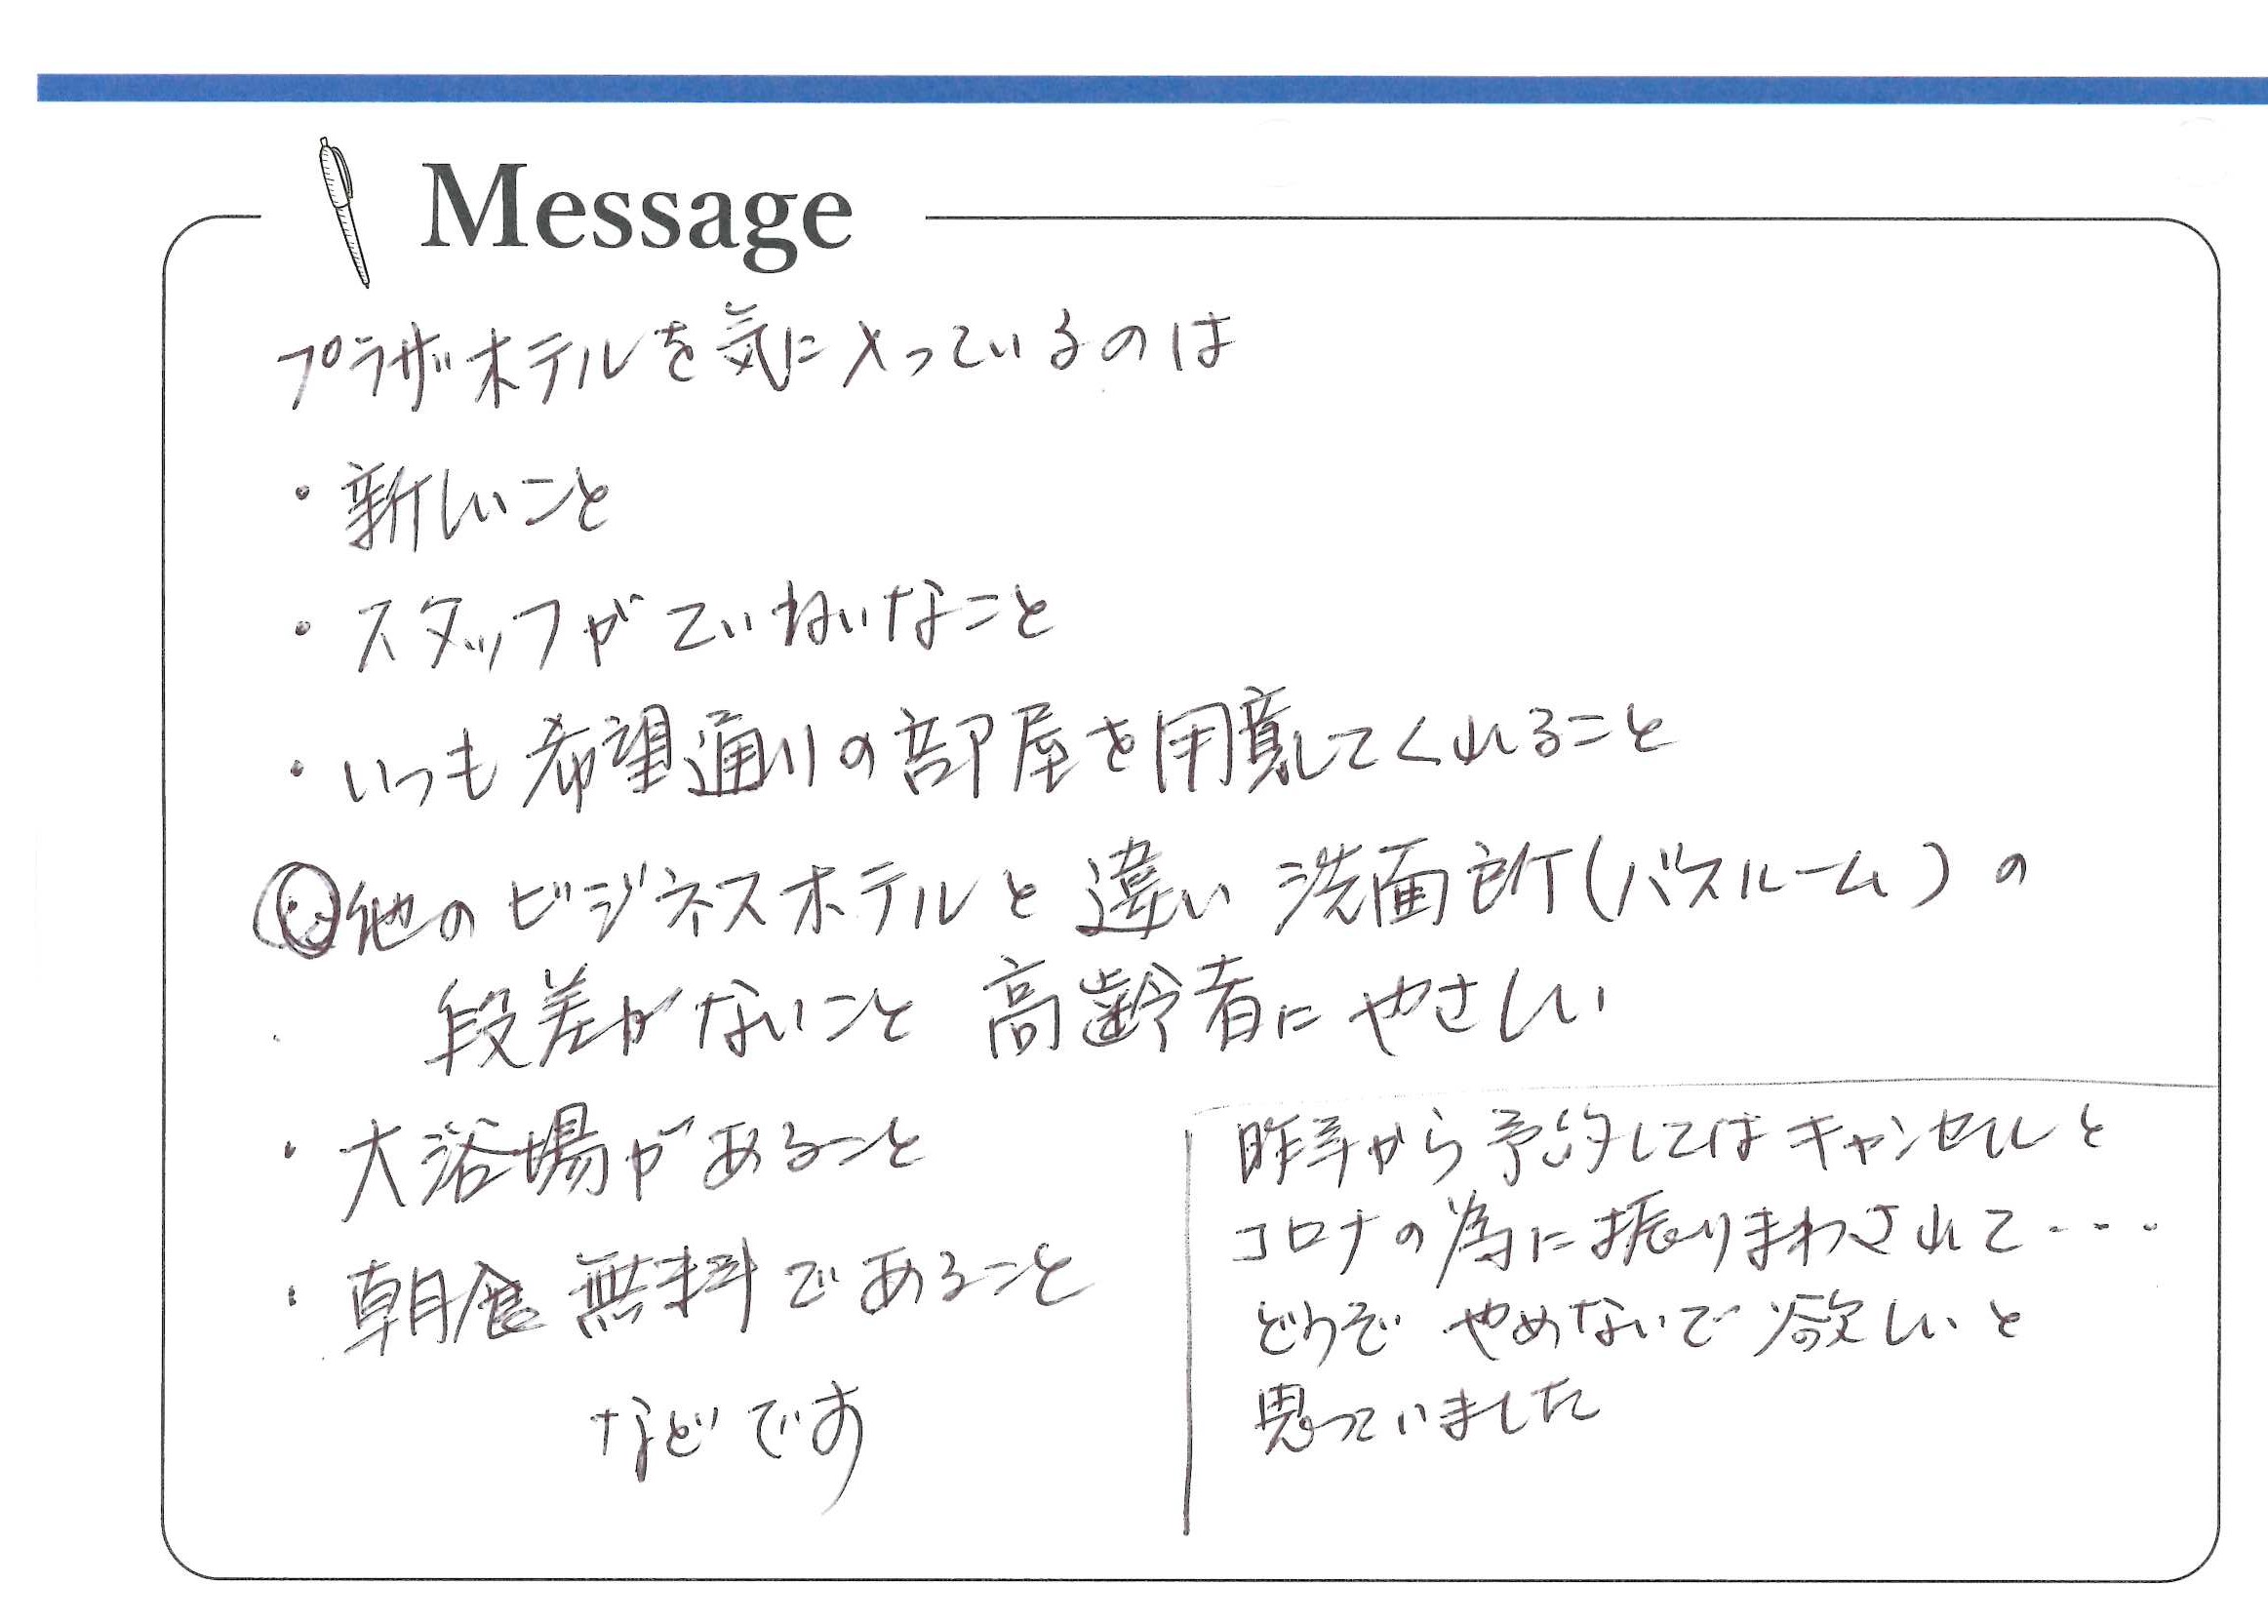 Message
プラザホテルを気に入っているのは
・新しいこと
・スタッフがていねいなこと
・いつも希望通りの部屋を用意してくれること
◎他のビジネスホテルと違い 洗面所(バスルーム)の
段差がないこと 高齢者にやさしい
・大浴場があること
・朝食無料であること
などです
昨年から予約してはキャンセルと
コロナの為に振りまわされて・・・・
どうぞ やめないで欲しいと
思っていました